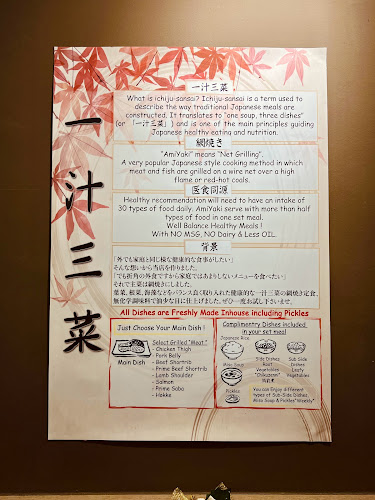 一汁三菜
一汁三菜
What is ichiju-sansai? Ichiju-sansai is a term used to
describe the way traditional Japanese meals are
constructed. It translates to "one soup, three dishes"
(or 「一汁三菜」) and is one of the main principles guiding
Japanese healthy eating and nutrition.
網焼き
"AmiYaki" means "Net Grilling".
A very popular Japanese style cooking method in which
meat and fish are grilled on a wire net over a high
flame or red-hot coals.
医食同源
Healthy recommendation will need to have an intake of
30 types of food daily. AmiYaki serve with more than half
types of food in one set meal.
Well Balance Healthy Meals !
With NO MSG, NO Dairy & Less OIL.
背景
「外でも家庭と同じ様な健康的な食事がしたい」
そんな想いから当店を作りました。
「でも折角の外食ですから家庭ではあまりしないメニューを食べたい」
それで主菜は網焼きにしました。
葉菜、根菜、海藻などをバランス良く取り入れた健康的な一汁三菜の網焼き定食、
無化学調味料で油少な目に仕上げました。ぜひ一度お試し下さいませ。
All Dishes are Freshly Made Inhouse including Pickles
Just Choose Your Main Dish !
Main Dish
Select Grilled "Meat"
- Chicken Thigh
- Pork Belly
- Beef Shortrib
- Prime Beef Shortrib
- Lamb Shoulder
- Salmon
- Prime Saba
- Hokke
Complimentry Dishes included
in your set meal
Japanese Rice
Miso Soup
Pickles
Side Dishes
Root
Vegetables
"Chikuzeni"
筑前煮
Sub-Side
Dishes
Leafy
Vegetables
You can Enjoy different
types of Sub-Side Dishes
Miso Soup & Pickles "Weekly"